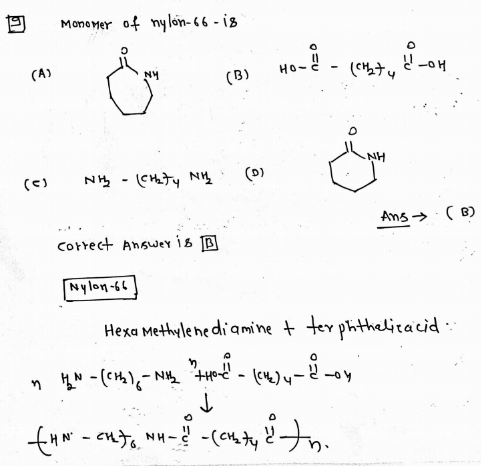 9 Monomer of nylon-66-is
(A) O NH (B) HO-C(=O)-(CH2)4-C(=O)-OH
(C) NH2-(CH2)4 NH2 (D) O NH
Ans → (B)
correct Answer is B
Nylon-66
Hexa Methylenediamine + terphthalicacid
n H2N-(CH2)6-NH2 + n HO-C(=O)-(CH2)4-C(=O)-OH
↓
(HN-CH2)6 NH-C(=O)-(CH2)4 C(=O))n.